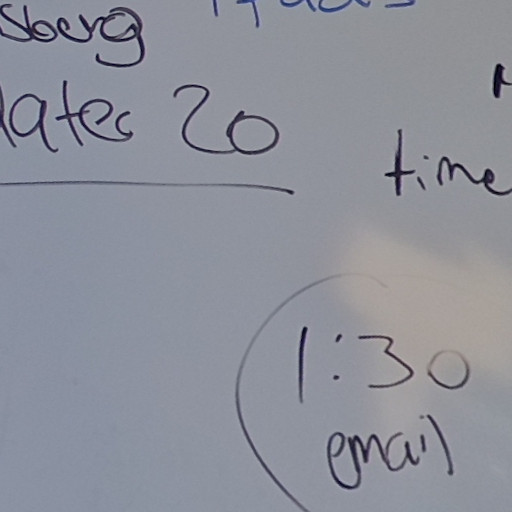 sberg
lates 20
time
1:30
email